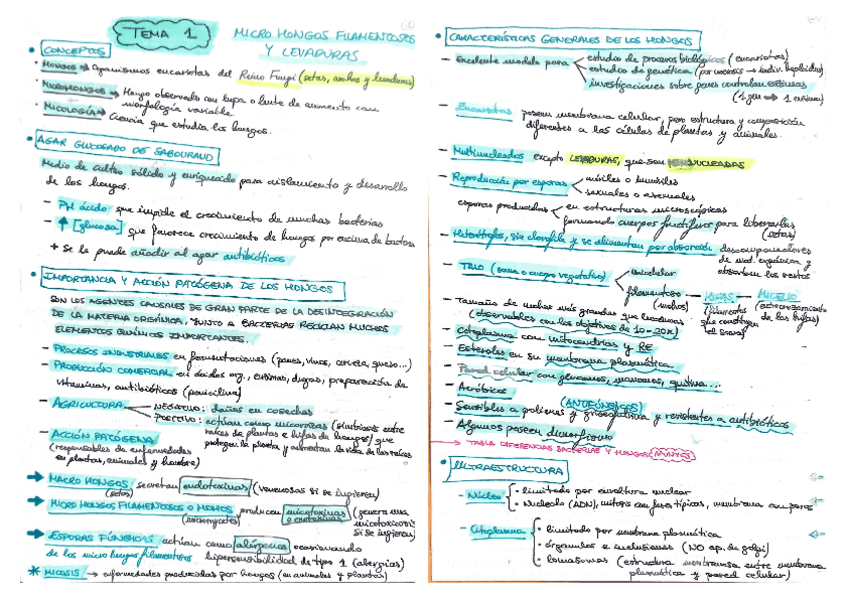 TEMA 1
MICRO HONGOS FILAMENTOSOS
Y LEVADURAS
• CONCEPTOS
· HONGOS → Organismos eucariotas del Reino Fungi (setas, mohos y levaduras)
· MICROHONGOS → Hongo observado con lupa o lente de aumento con
morfología variable.
· MICOLOGÍA → Ciencia que estudia los hongos.
• AGAR GLUCOSADO DE SABOURAUD
Medio de cultivo sólido y enriquecido para aislamiento y desarrollo
de los hongos.
- PH ácido que impide el crecimiento de muchas bacterias
- ↑ [glucosa] que favorece crecimiento de hongos por encima de bacterias
+ Se le puede añadir al agar antibióticos
• IMPORTANCIA Y ACCIÓN PATÓGENA DE LOS HONGOS
SON LOS AGENTES CAUSALES DE GRAN PARTE DE LA DESINTEGRACIÓN
DE LA MATERIA ORGÁNICA, JUNTO A BACTERIAS RECICLAN MUCHOS
ELEMENTOS QUÍMICOS IMPORTANTES.
- PROCESOS INDUSTRIALES en fermentaciones (panes, vinos, cerveza, queso...)
- PRODUCCIÓN COMERCIAL en ácidos org., enzimas, drogas, preparación de
vitaminas, antibióticos (penicilina)
- AGRICULTURA
NEGATIVO: daños en cosechas
POSITIVO: actúan como micorrizas (simbiosis entre
raíces de plantas e hifas de hongos) que
protegen la planta y aumentan la vida de las raíces
- ACCIÓN PATÓGENA
(responsables de enfermedades
en plantas, animales y hombre)
→ MACRO HONGOS secretan endotoxinas (venenosas si se ingieren)
(setas)
→ MICRO HONGOS FILAMENTOSOS O MOHOS producen micotoxinas (genera una
o exotoxinas micotoxicosis
si se ingieren)
→ ESPORAS FÚNGICAS actúan como alérgenos ocasionando
de los micro hongos filamentosos hipersensibilidad de tipo 1 (alergias)
* MICOSIS → enfermedades producidas por hongos (en animales y plantas)
• CARACTERÍSTICAS GENERALES DE LOS HONGOS
- Excelente modelo para
estudios de procesos biológicos (eucariotas)
estudios de genética (por meiosis → indiv. haploides)
investigaciones sobre genes controlan enzimas
(1 gen → 1 enzima)
- Eucariotas poseen membrana celular, pero estructura y composición
diferentes a las células de plantas y animales.
- Multinucleados excepto LEVADURAS, que son MONONUCLEADAS
- Reproducción por esporas
móviles o inmóviles
sexuales o asexuales
esporas producidas
en estructuras microscópicas
formando cuerpos fructíferos para liberarlas
(setas)
- Heterótrofos, sin clorofila y se alimentan por absorción descomponedores
de mat. orgánica y
absorben los restos
- TALO (soma o cuerpo vegetativo)
unicelular
filamentoso — HIFAS — MICELIO
(mohos)
(filamentos
que constituyen
el soma)
(entrecruzamiento
de las hifas)
- Tamaño de mohos más grandes que levaduras
(observables con los objetivos de 10-20x)
- Citoplasma con mitocondrias y RE
- Esteroles en su membrana plasmática.
- Pared celular con glucanos, mananos, quitina...
- Aeróbicos
(ANTIFÚNGICOS)
- Sensibles a polienos y griseofulvina y resistentes a antibióticos
- Algunos poseen dimorfismo
→ TABLA DIFERENCIAS BACTERIAS Y HONGOS
• ULTRAESTRUCTURA
- Núcleo
· limitado por envoltura nuclear
· Nucleolo (ADN), mitosis con fases típicas, membrana con poros
- Citoplasma
· limitado por membrana plasmática
· orgánulos e inclusiones (NO ap. de golgi)
· lomasomas (estructura membranosa entre membrana
plasmática y pared celular)